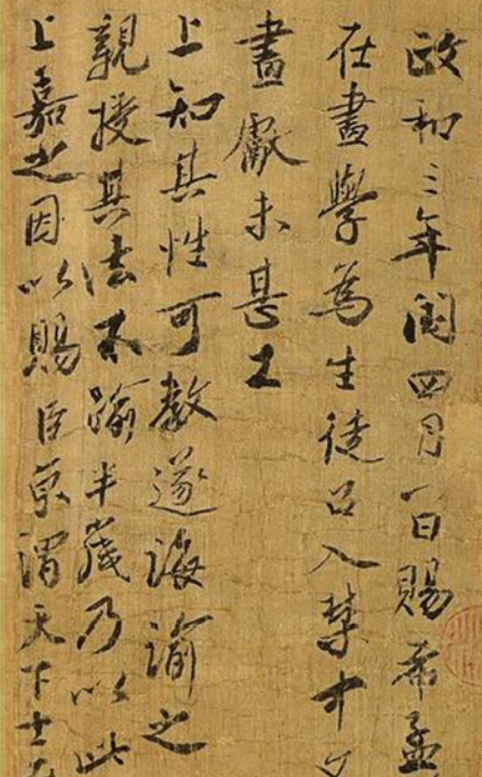 政和三年閏四月一日賜希孟
在畫學為生徒召入禁中
畫獻未甚工
上知其性可教遂誨諭之
親授其法不踰半歲乃以此
上嘉之因以賜臣京謂天下士